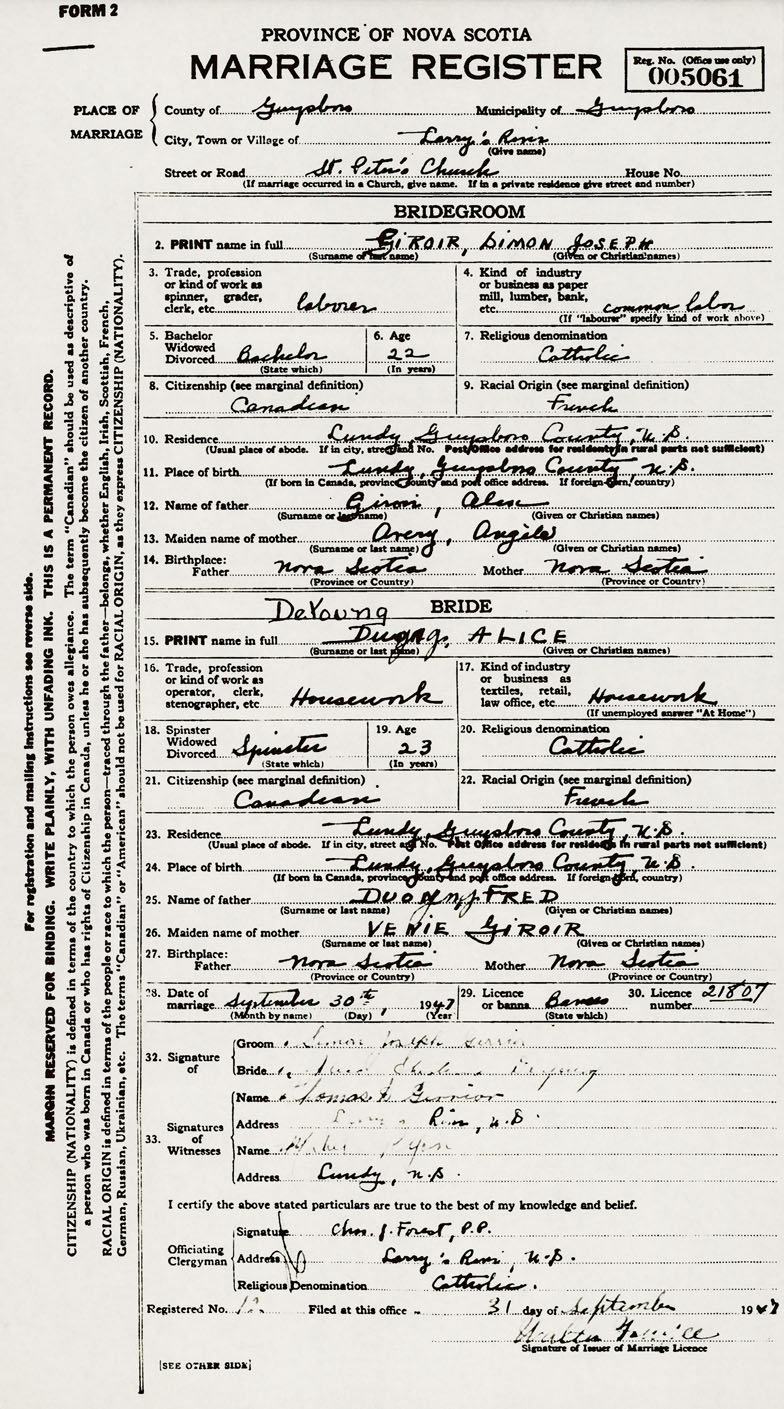 FORM 2
PROVINCE OF NOVA SCOTIA
MARRIAGE REGISTER
Reg. No. (Office use only)
005061
PLACE OF MARRIAGE
County of Guysboro Municipality of Guysboro
City, Town or Village of Larry's River
(Give name)
Street or Road St. Peter's Church House No.
(If marriage occurred in a Church, give name. If in a private residence give street and number)
BRIDEGROOM
2. PRINT name in full GIROIR, SIMON JOSEPH
(Surname or last name) (Given or Christian names)
3. Trade, profession or kind of work as spinner, grader, clerk, etc. laborer
4. Kind of industry or business as paper mill, lumber, bank, etc. common labor
(If "labourer" specify kind of work above)
5. Bachelor Widowed Divorced Bachelor
(State which)
6. Age 22
(In years)
7. Religious denomination
Catholic
8. Citizenship (see marginal definition)
Canadian
9. Racial Origin (see marginal definition)
French
10. Residence Lundy, Guysboro County, N.S.
(Usual place of abode. If in city, street and No. Post Office address for residents in rural parts not sufficient)
11. Place of birth Lundy, Guysboro County N.S.
(If born in Canada, province, county and post office address. If foreign-born, country)
12. Name of father Giroir, Alex
(Surname or last name) (Given or Christian names)
13. Maiden name of mother Avery, Angela
(Surname or last name) (Given or Christian names)
14. Birthplace: Father Nova Scotia Mother Nova Scotia
(Province or Country) (Province or Country)
DeYoung
BRIDE
15. PRINT name in full ALICE
(Surname or last name) (Given or Christian names)
16. Trade, profession or kind of work as operator, clerk, stenographer, etc Housework
17. Kind of industry or business as textiles, retail, law office, etc. Housework
(If unemployed answer "At Home")
18. Spinster Widowed Divorced Spinster
(State which)
19. Age 23
(In years)
20. Religious denomination
Catholic
21. Citizenship (see marginal definition)
Canadian
22. Racial Origin (see marginal definition)
French
23. Residence Lundy, Guysboro County, N.S.
(Usual place of abode. If in city, street and No. Post Office address for residents in rural parts not sufficient)
24. Place of birth Lundy, Guysboro County N.S.
(If born in Canada, province, county and post office address. If foreign-born, country)
25. Name of father FRED
(Surname or last name) (Given or Christian names)
26. Maiden name of mother VENIE GIROIR
(Surname or last name) (Given or Christian names)
27. Birthplace: Father Nova Scotia Mother Nova Scotia
(Province or Country) (Province or Country)
28. Date of marriage September 30th, 1947
(Month by name) (Day) (Year)
29. Licence or banns Banns
(State which)
30. Licence number 21807
32. Signature of
Groom Simon Joseph
Bride
33. Signatures of Witnesses
Name Thomas
Address Larry's River, N.S.
Name
Address Lundy, N.S.
I certify the above stated particulars are true to the best of my knowledge and belief.
Officiating Clergyman
Signature Chas. J. Forest, P.P.
Address Larry's River, N.S.
Religious Denomination Catholic.
Registered No. 12 Filed at this office 31 day of September 1947
Signature of Issuer of Marriage Licence
[SEE OTHER SIDE]
For registration and mailing instructions see reverse side.
MARGIN RESERVED FOR BINDING. WRITE PLAINLY, WITH UNFADING INK. THIS IS A PERMANENT RECORD.
CITIZENSHIP (NATIONALITY) is defined in terms of the country to which the person owes allegiance. The term "Canadian" should be used as descriptive of
a person who was born in Canada or who has rights of Citizenship in Canada, unless he or she has subsequently become the citizen of another country.
RACIAL ORIGIN is defined in terms of the people or race to which the person—traced through the father—belongs, whether English, Irish, Scottish, French,
German, Russian, Ukrainian, etc. The terms "Canadian" or "American" should not be used for RACIAL ORIGIN, as they express CITIZENSHIP (NATIONALITY).